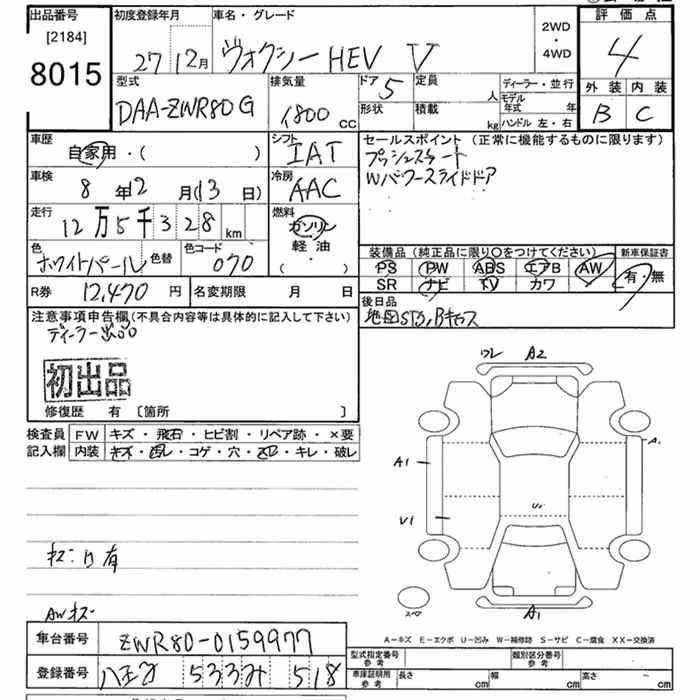 出品番号
[2184]
8015
初度登録年月
27 12月
車名・グレード
ヴォクシーHEV V
2WD
・
4WD
評価点
4
外装 内装
B C
型式
DAA-ZWR80G
排気量
1800 cc
ドア 5
形状
定員 人
積載 kg
ディーラー・並行
モデル年式 年
ハンドル 左・右
車歴
自家用・( )
シフト
IAT
車検
8年12月(13日)
冷房
AAC
走行
12万5千328km
燃料
ガソリン
軽油
( ・ )
色
ホワイトパール
色替
色コード
070
R券 12,470円
名変期限 月 日
セールスポイント (正常に機能するものに限ります)
プッシュスタート
Wパワースライドドア
装備品(純正品に限り〇をつけてください) 新車保証書
PS PW ABS エアB AW
SR ナビ TV カワ
有・無
後日品
注意事項申告欄(不具合内容等は具体的に記入して下さい)
ディーラー出品
初出品
修復歴 有 [箇所 ]
検査員
記入欄
FW キズ・飛石・ヒビ割・リペア跡・×要
内装 キズ・汚レ・コゲ・穴・スレ・キレ・破レ
ワレ A2
A1
A1
U1
A1
スペア
有
AWキズ
A-キズ E-エクボ U-凹み W-補修跡 S-サビ C-腐食 XX-交換済
車台番号 ZWR80-0159977
登録番号 八王子 533 み 518
型式指定番号
参考
類別区分番号
参考
車庫証明用
参考
長さ cm 幅 cm 高さ cm